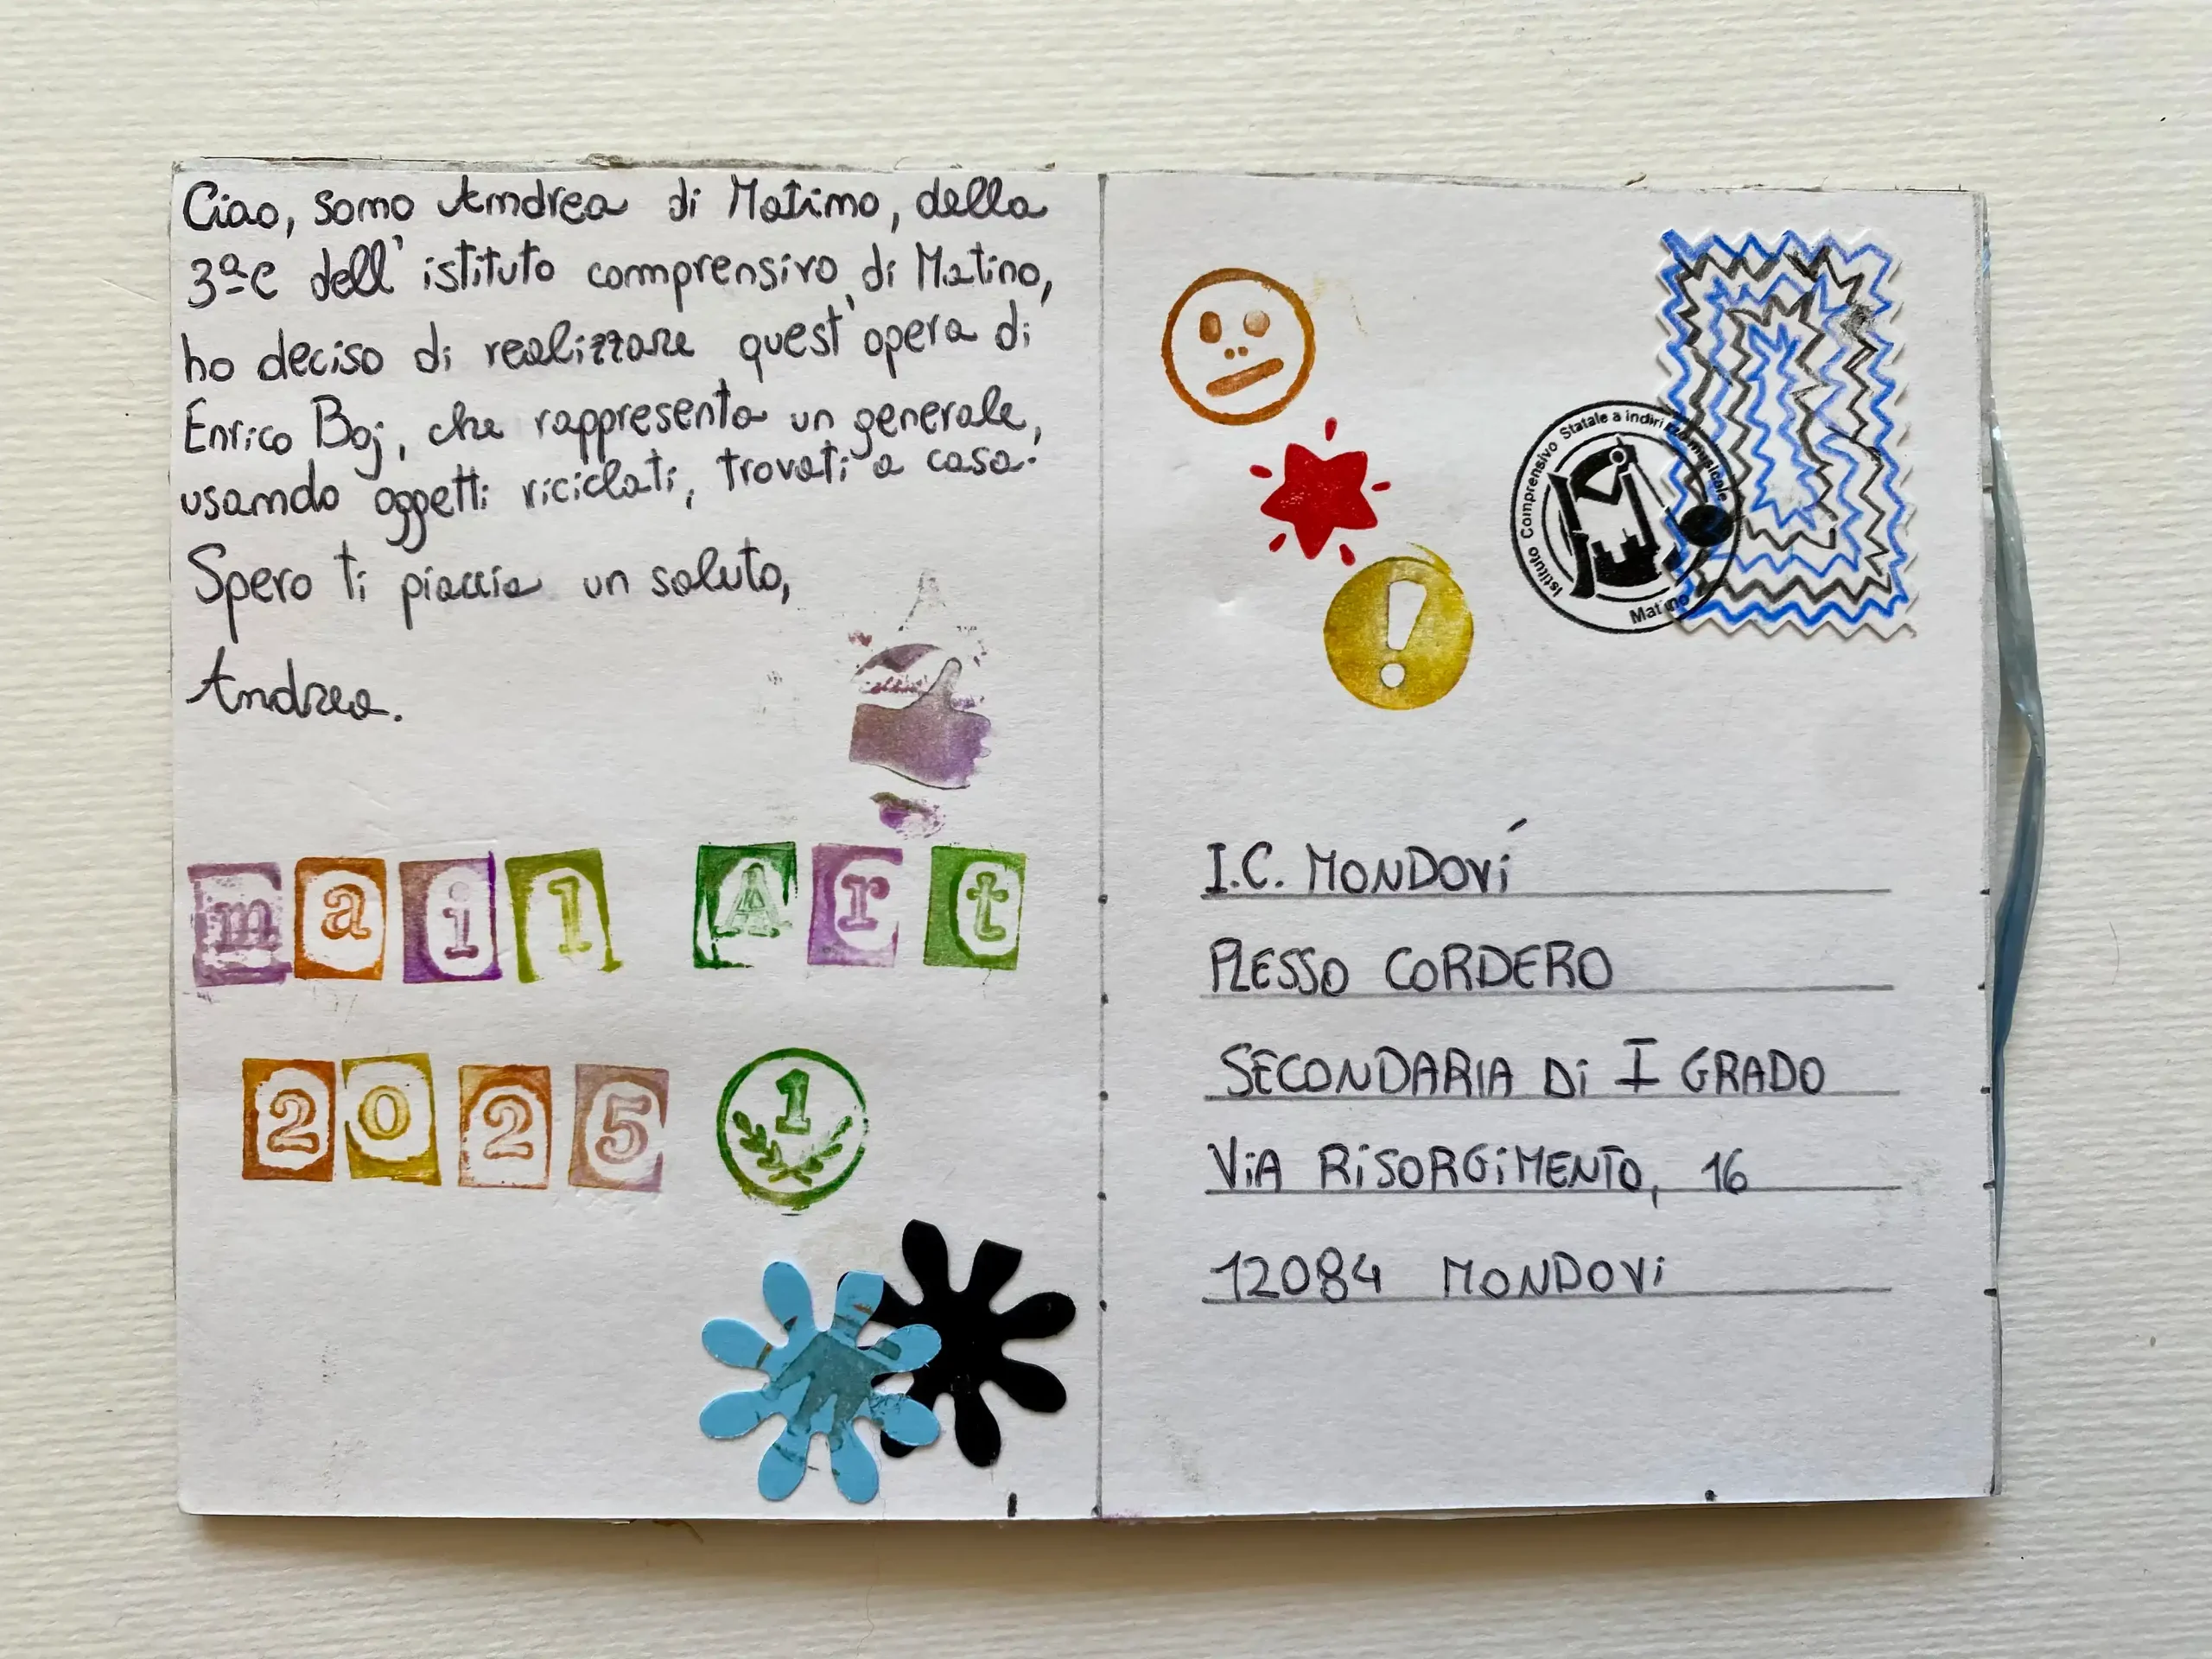 Ciao, sono Andrea di Matino, della
3ªC dell'istituto comprensivo di Matino,
ho deciso di realizzare quest'opera di
Enrico Baj, che rappresenta un generale,
usando oggetti riciclati, trovati a casa.
Spero ti piaccia un saluto,
Andrea.
mail Art
2025 1
!
Istituto Comprensivo Statale a indirizzo musicale
Matino
I.C. MONDOVÍ
PLESSO CORDERO
SECONDARIA Di I GRADO
ViA RiSORGiMENTO, 16
12084 MONDOVi